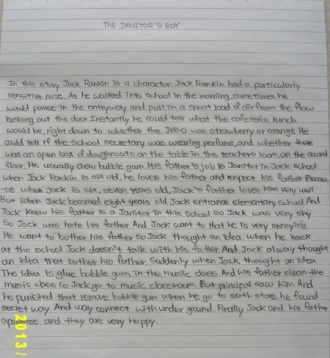 THE JANITOR'S BOY
In this story Jack Rankin is a character. Jack Rankin had a particularly
sensitive nose. As he walked into school in the morning, sometimes he
would pause in the entryway and pull in a snoot load of air from the flow
rushing out the door. Instantly he could tell what the cafeteria lunch
would be, right down to whether the Jello was strawberry or orange. He
could tell if the school secretary was wearing perfume, and whether there
was an open box of doughnuts on the table in the teachers room on the second
floor. He usually chew bubble gum. His father's job is to Janitor in Jack school
when Jack Rankin is six old, he loves his father and respect his father Becau
se when Jack is six, seven years old, Jack's father loves him very well
But when Jack becomed eight years old Jack entrance elementary school And
Jack knew his father is a Janitor in this School So Jack was very shy
So Jack was hate his father And Jack want to that he is very annoying
He want to bother his father so Jack thought an idea when he back
at the school Jack doesn't talk with his father And Jack alway thought
an idea that bother his father Suddenly when Jack thought an idea
The Idea is glue bubble gum in the music does And his father clean the
music class So Jack go to music classroom. But principal saw him And
he punished that remove bubble gum when he go to store he found
secret way And way connect with under ground. Finally Jack and his father
and they are very happy.
2013